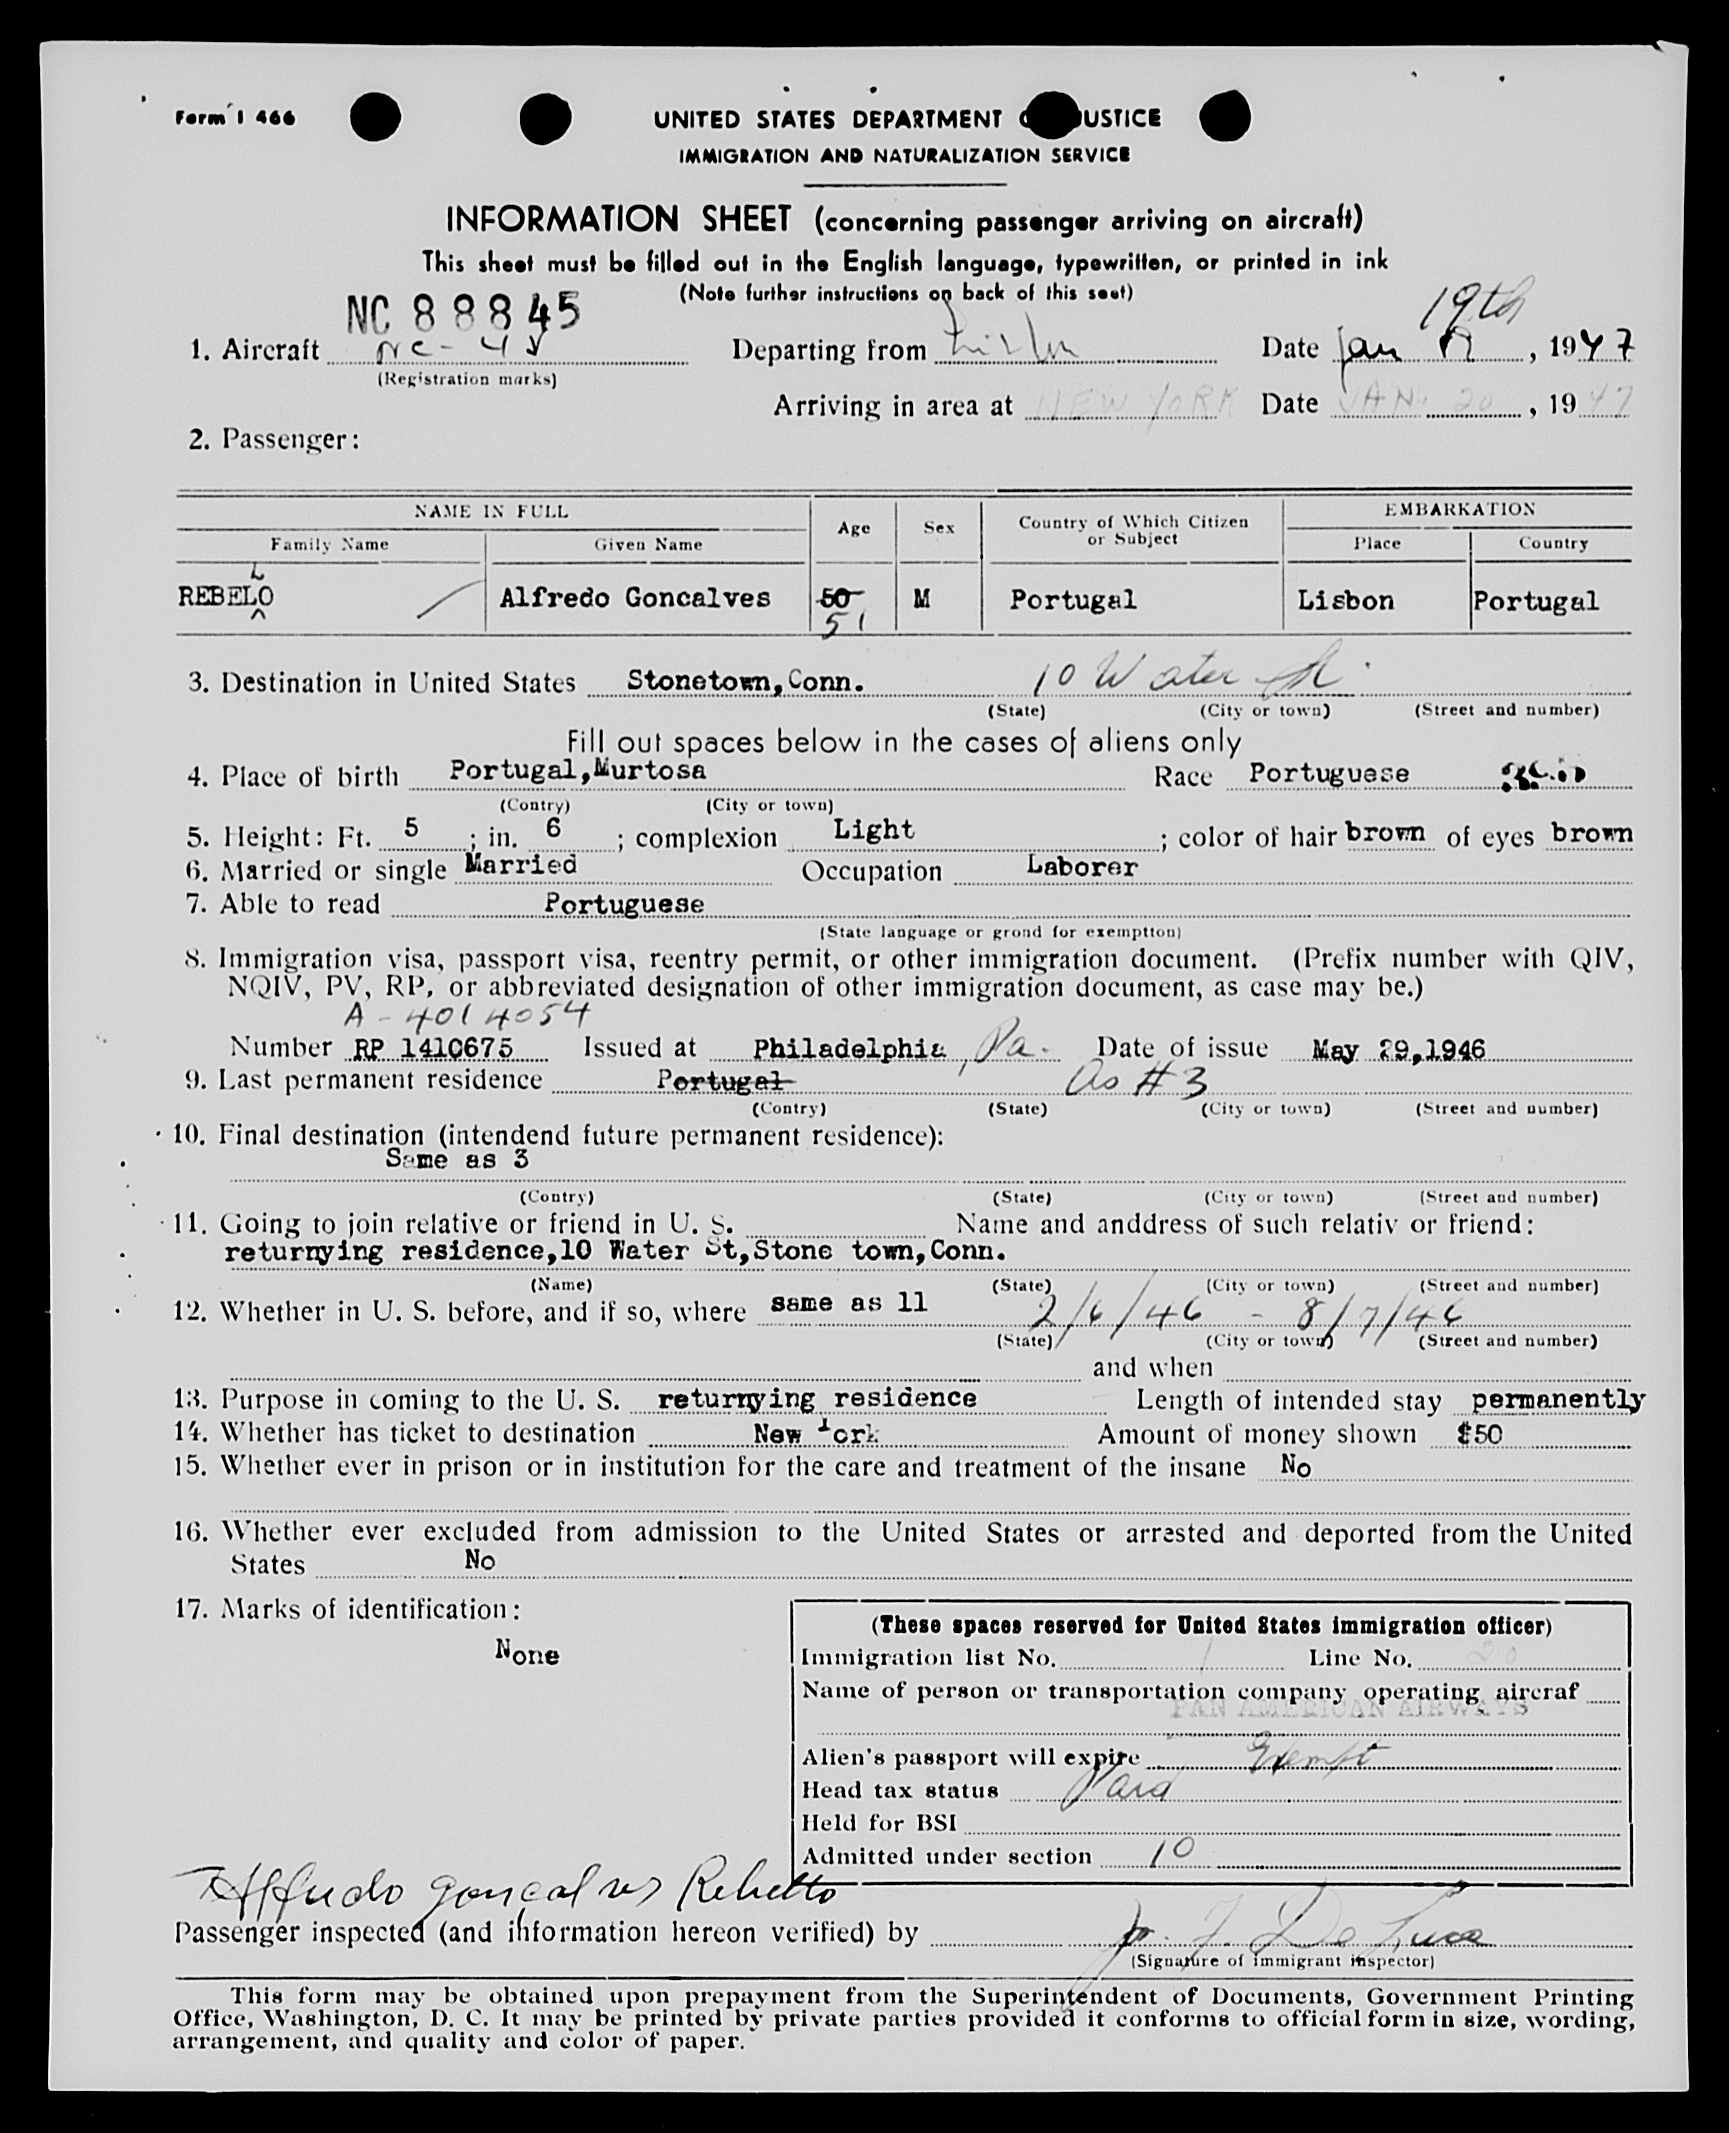 Form I 466
UNITED STATES DEPARTMENT USTICE
IMMIGRATION AND NATURALIZATION SERVICE
INFORMATION SHEET (concerning passenger arriving on aircraft)
This sheet must be filled out in the English language, typewritten, or printed in ink
(Note further instructions on back of this seet)
NC 88845
19th
1. Aircraft NC- 4 Departing from Date Jan 19, 1947
(Registration marks)
Arriving in area at NEW YORK Date JAN. 20, 1947
2. Passenger:
NAME IN FULL Age Sex Country of Which Citizen or Subject EMBARKATION
Family Name Given Name Place Country
L
REBELO Alfredo Goncalves 50 M Portugal Lisbon Portugal
51
3. Destination in United States Stonetown, Conn. 10 Water St.
(State) (City or town) (Street and number)
Fill out spaces below in the cases of aliens only
4. Place of birth Portugal, Murtosa Race Portuguese
(Contry) (City or town)
5. Height: Ft. 5; in. 6; complexion Light; color of hair brown of eyes brown
6. Married or single Married Occupation Laborer
7. Able to read Portuguese
(State language or grond for exemptton)
8. Immigration visa, passport visa, reentry permit, or other immigration document. (Prefix number with QIV,
NQIV, PV, RP, or abbreviated designation of other immigration document, as case may be.)
A-4014054
Number RP 1410675 Issued at Philadelphia, Pa. Date of issue May 29,1946
9. Last permanent residence Portugal As #3
(Contry) (State) (City or town) (Street and number)
10. Final destination (intendend future permanent residence):
Same as 3
(Contry) (State) (City or town) (Street and number)
11. Going to join relative or friend in U. S. Name and anddress of such relativ or friend:
returnying residence,10 Water St,Stone town,Conn.
(Name) (State) (City or town) (Street and number)
12. Whether in U. S. before, and if so, where same as 11 2/6/46 - 8/7/46
(State) (City or town) (Street and number)
and when
13. Purpose in coming to the U. S. returnying residence Length of intended stay permanently
14. Whether has ticket to destination New York Amount of money shown $50
15. Whether ever in prison or in institution for the care and treatment of the insane No
16. Whether ever excluded from admission to the United States or arrested and deported from the United
States No
17. Marks of identification:
None
(These spaces reserved for United States immigration officer)
Immigration list No. 1 Line No. 20
Name of person or transportation company operating aircraf
PAN AMERICAN AIRWAYS
Alien's passport will expire Exempt
Head tax status Paid
Held for BSI
Admitted under section 10
Alfredo goncalves Rebello
Passenger inspected (and information hereon verified) by J. De Luca
(Signature of immigrant inspector)
This form may be obtained upon prepayment from the Superintendent of Documents, Government Printing
Office, Washington, D. C. It may be printed by private parties provided it conforms to official form in size, wording,
arrangement, and quality and color of paper.